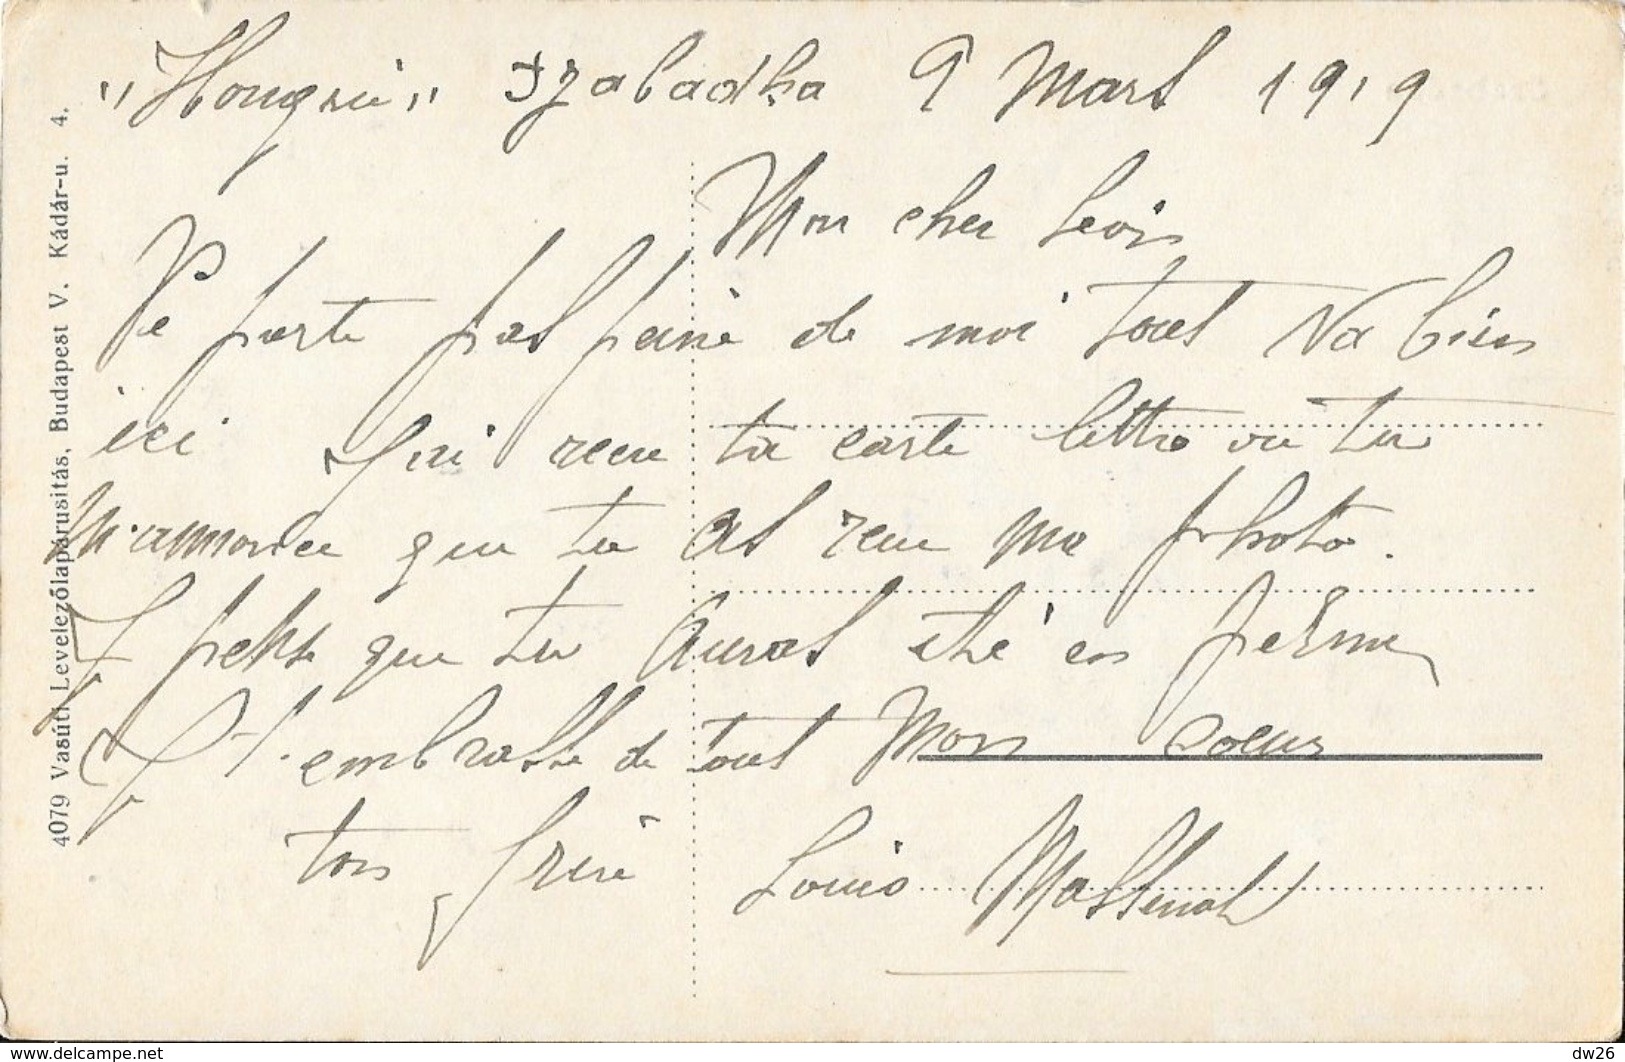 "Hongrie" Szabadka 9 Mars 1919
Mon cher Levis
Ne porte pas peine de moi tout va bien
ici J'ai recu ta carte lettre ou tu
m'annonce que tu as recu ma photo.
J pense que tu auras été en perme
J t'embrasse de tout mon coeur
ton frère Louis Massenat
4079 Vasúti Levelezőlapárusitás, Budapest V. Kádár-u. 4.
www.delcampe.net
dw26